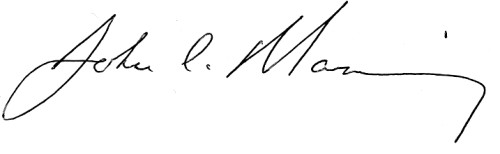 John C. Manning